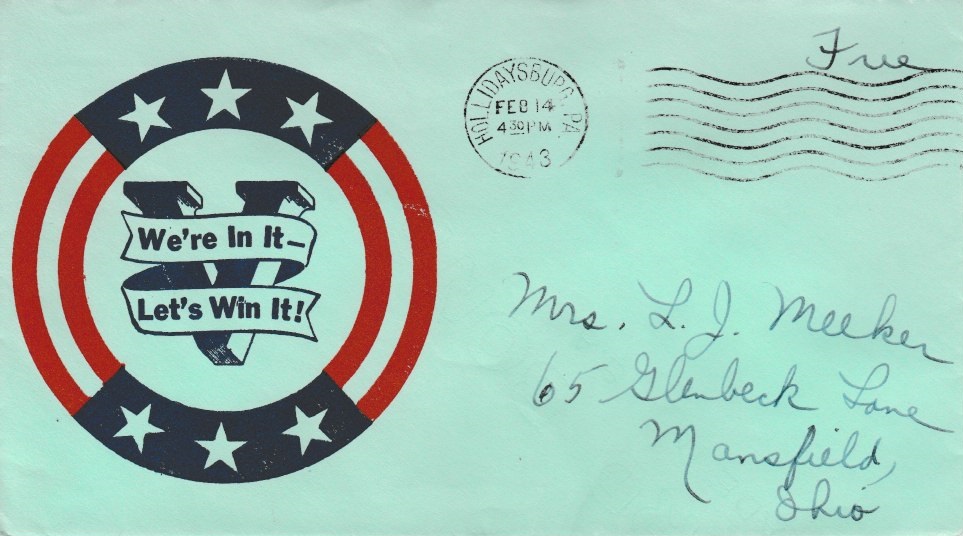 We're In It—
Let's Win It!
HOLLIDAYSBURG, PA
FEB 14
4 30 PM
1943
Free
Mrs. L. J. Meeker
65 Glenbeck Lane
Mansfield,
Ohio